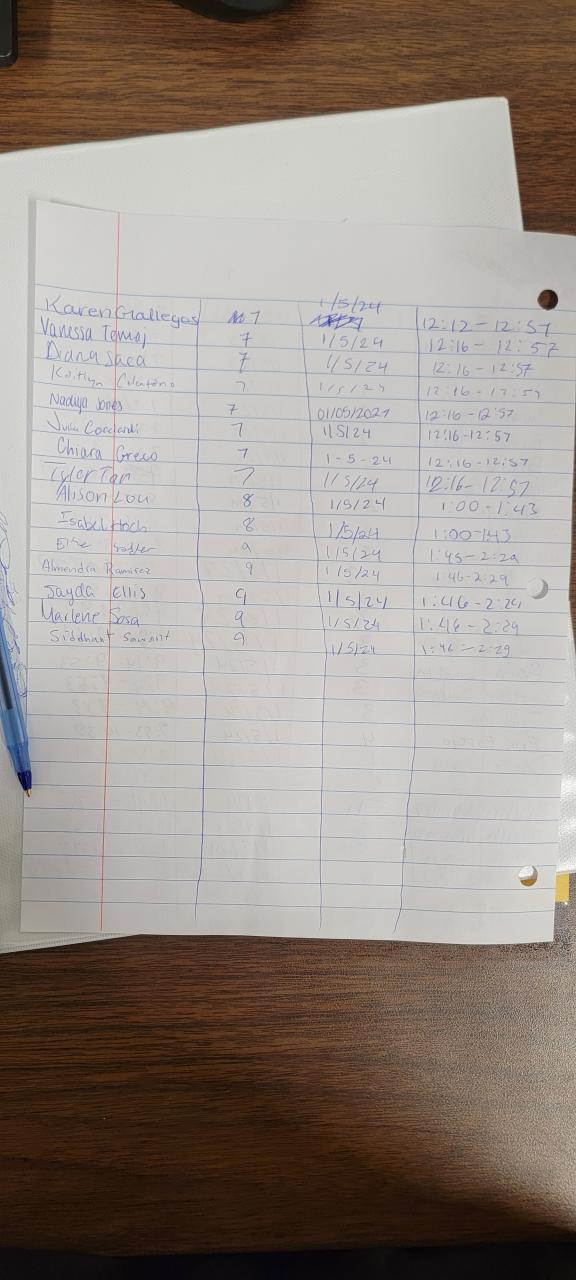 Karen Gallegos 7 1/5/24 12:12 - 12:57
Vanessa Temaj 7 1/5/24 12:16 - 12:57
Diana Saca 7 1/5/24 12:16 - 12:57
7 1/5/24 12:16 - 12:57
Nadiya Jones 7 01/05/2021 12:16 - 12:57
7 1/5/24 12:16-12:57
Chiara Greco 7 1-5-24 12:16-12:57
Tyler Tan 7 1/5/24 12:16- 12:57
Alison Lou 8 1/5/24 1:00 - 1:43
Isabel Hoch 8 1/5/24 1:00-1:43
9 1/5/24 1:45-2:29
Almendra Ramirez 9 1/5/24 1:46-2:29
Jayda Ellis 9 1/5/24 1:46-2:29
Marlene Sosa 9 1/5/24 1:46 - 2:29
Siddhant 9 1/5/24 1:46 - 2:29